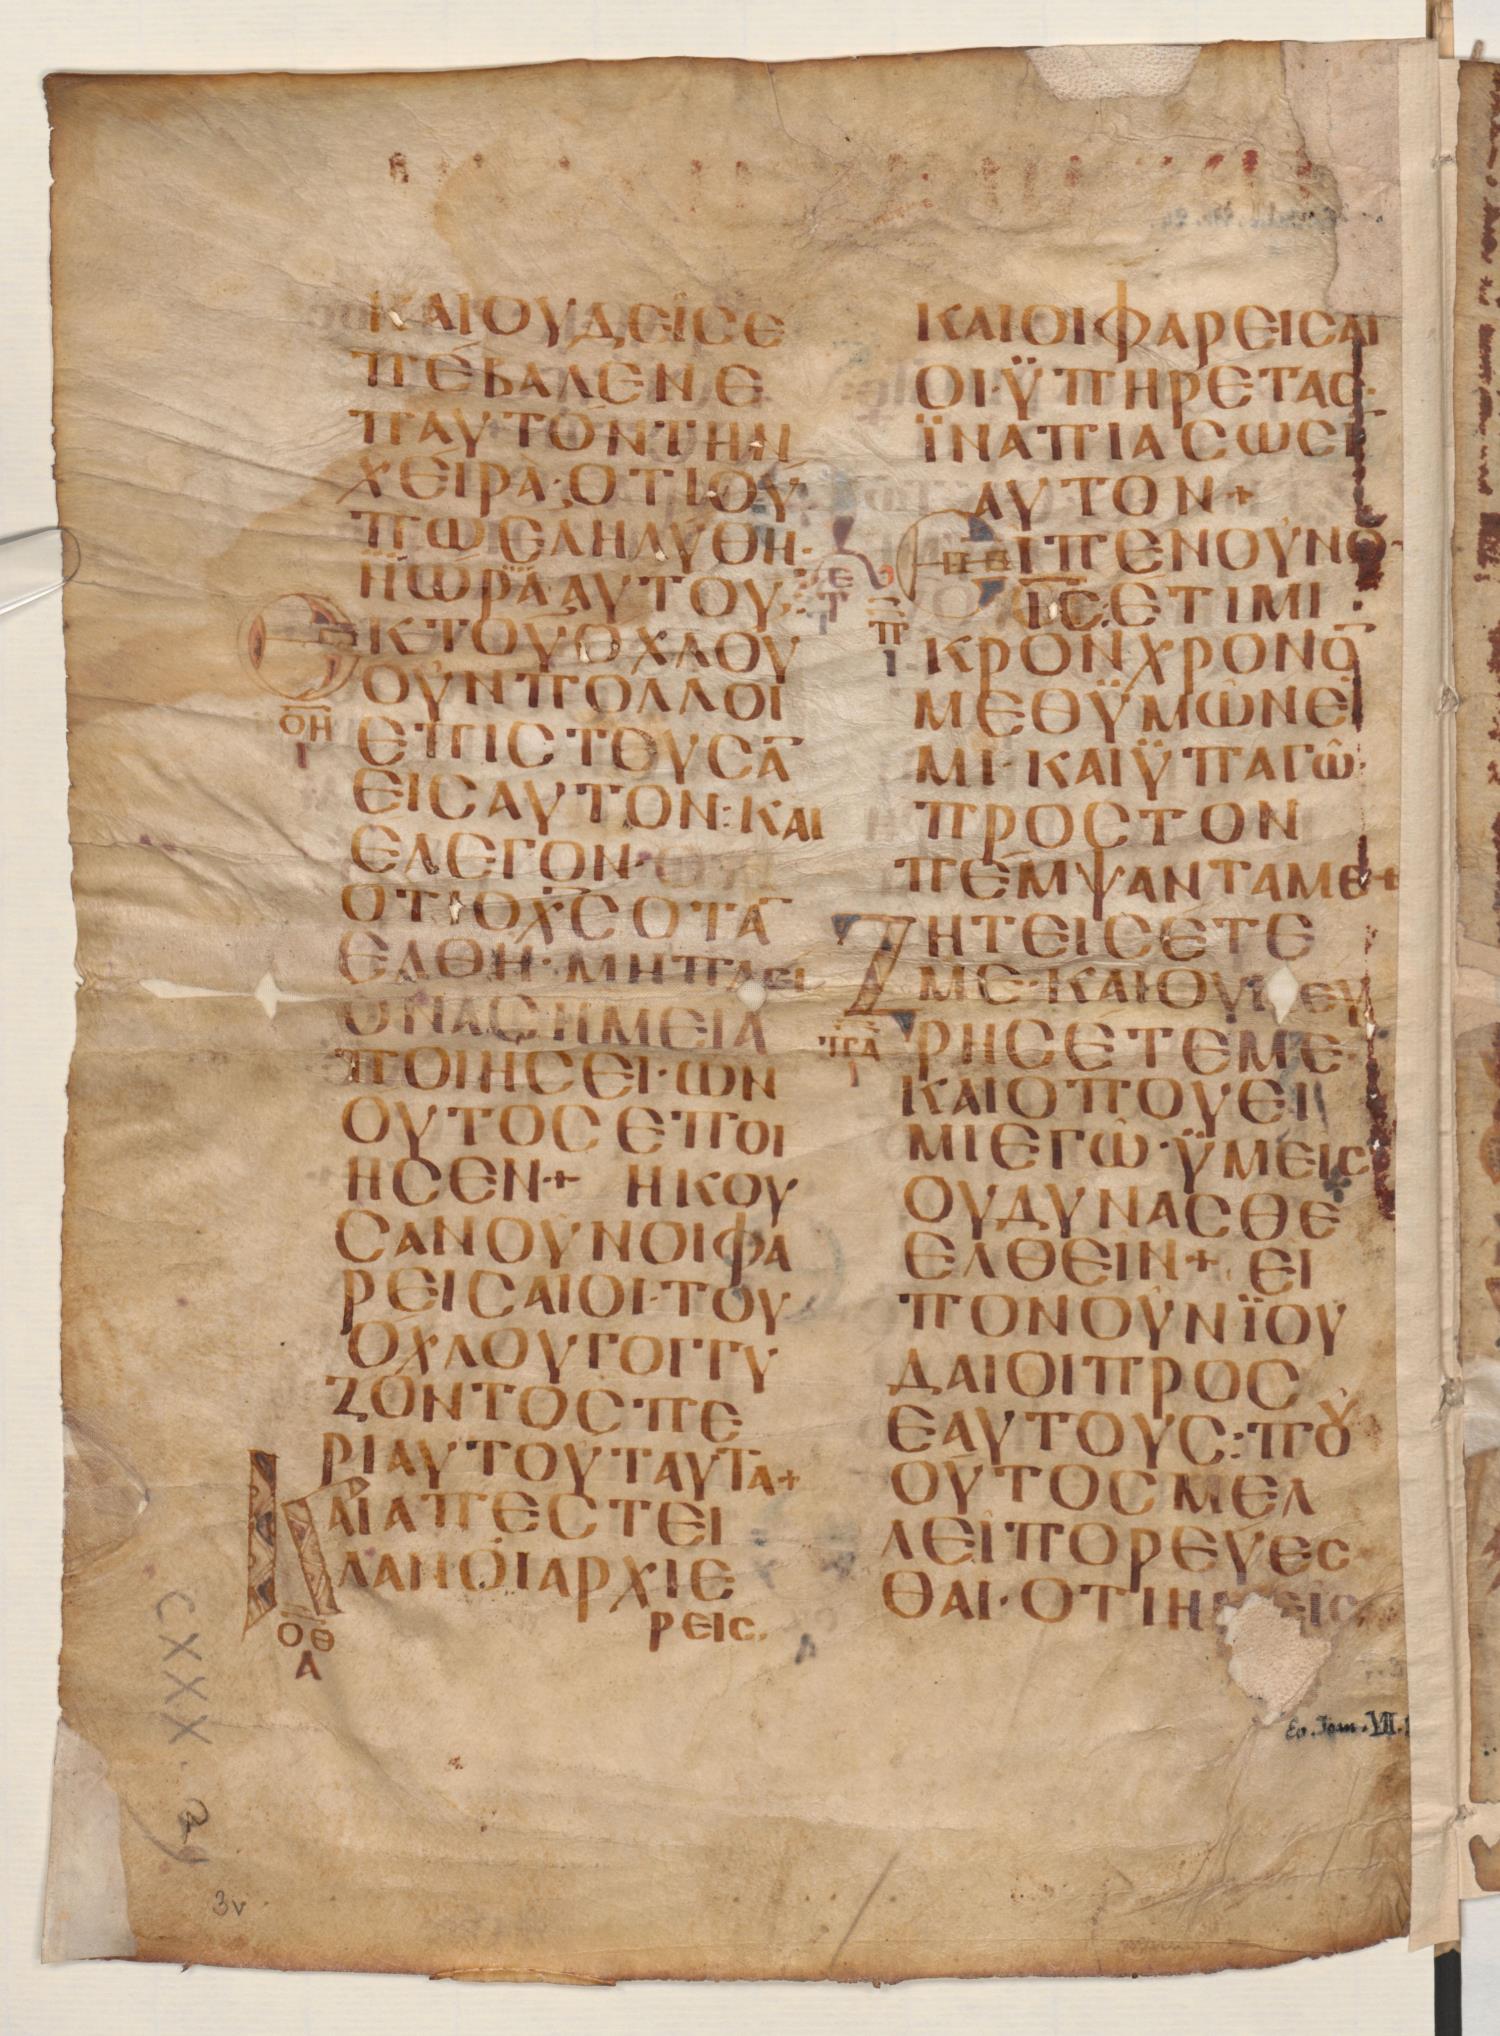 ΚΑΙΟΥΔΕΙΣΕ
ΠΕΒΑΛΕΝΕ
ΠΑΥΤΟΝΤΗΝ
ΧΕΙΡΑ·ΟΤΙΟΥ
ΠΩΕΛΗΛΥΘΗ·
ΗΩΡΑΑΥΤΟΥ
ΕΚΤΟΥΟΧΛΟΥ
ΟΥΝΠΟΛΛΟΙ
ΟΗ
Ι
ΕΠΙΣΤΕΥΣΑ̅
ΕΙΣΑΥΤΟΝ:ΚΑΙ
ΕΛΕΓΟΝ·
ΟΤΙΟΧ̅Σ̅ΟΤΑ̅
ΕΛΘΗ·ΜΗΠΛΕΙ
ΟΝΑΣΗΜΕΙΑ
ΠΟΙΗΣΕΙ·ΩΝ
ΟΥΤΟΣΕΠΟΙ
ΗΣΕΝ+ ΗΚΟΥ
ΣΑΝΟΥΝΟΙΦΑ
ΡΕΙΣΑΙΟΙ·ΤΟΥ
ΟΧΛΟΥΓΟΓΓΥ
ΖΟΝΤΟΣΠΕ
ΡΙΑΥΤΟΥΤΑΥΤΑ+
ΚΑΙΑΠΕΣΤΕΙ
ΛΑΝΟΙΑΡΧΙΕ
ΡΕΙΣ.
ΟΘ
Α
ΚΑΙΟΙΦΑΡΕΙΣΑΙ
ΟΙ·ΫΠΗΡΕΤΑΣ·
ΪΝΑΠΙΑΣΩΣΙ
ΑΥΤΟΝ+
ΕΙΠΕΝΟΥΝΟ
Ι̅Σ̅:ΕΤΙΜΙ
Π
Ι
ΚΡΟΝΧΡΟΝΟ̅
ΜΕΘΫΜΩΝΕΙ
ΜΙ·ΚΑΙΫΠΑΓΩ
ΠΡΟΣΤΟΝ
ΠΕΜΨΑΝΤΑΜΕ+
ΖΗΤΕΙΣΕΤΕ
ΜΕ·ΚΑΙΟΥΧΕΥ
ΠΑ
Ι
ΡΗΣΕΤΕΜΕ·
ΚΑΙΟΠΟΥΕΙ
ΜΙΕΓΩ·ΫΜΕΙΣ
ΟΥΔΥΝΑΣΘΕ
ΕΛΘΕΙΝ+ ΕΙ
ΠΟΝΟΥΝΪΟΥ
ΔΑΙΟΙΠΡΟΣ
ΕΑΥΤΟΥΣ:ΠΟΥ
ΟΥΤΟΣΜΕΛ
ΛΕΙΠΟΡΕΥΕΣ
ΘΑΙ·ΟΤΙΗΜΕΙΣ
Ev. Joan. VII.
CXXX. a)
3v